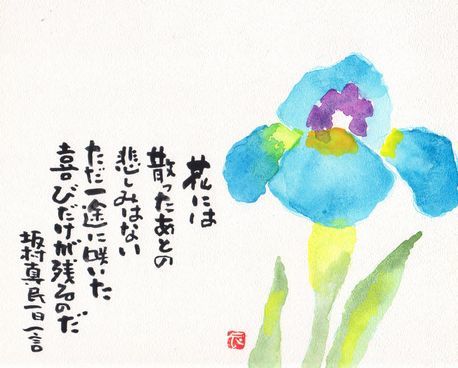 花には
散ったあとの
悲しみはない
ただ一途に咲いた
喜びだけが残るのだ
坂村真民一日一言